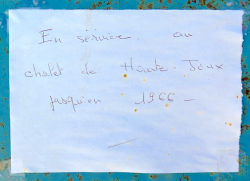 En service au
chalet de Haute-Joux
jusqu'en 1966 -